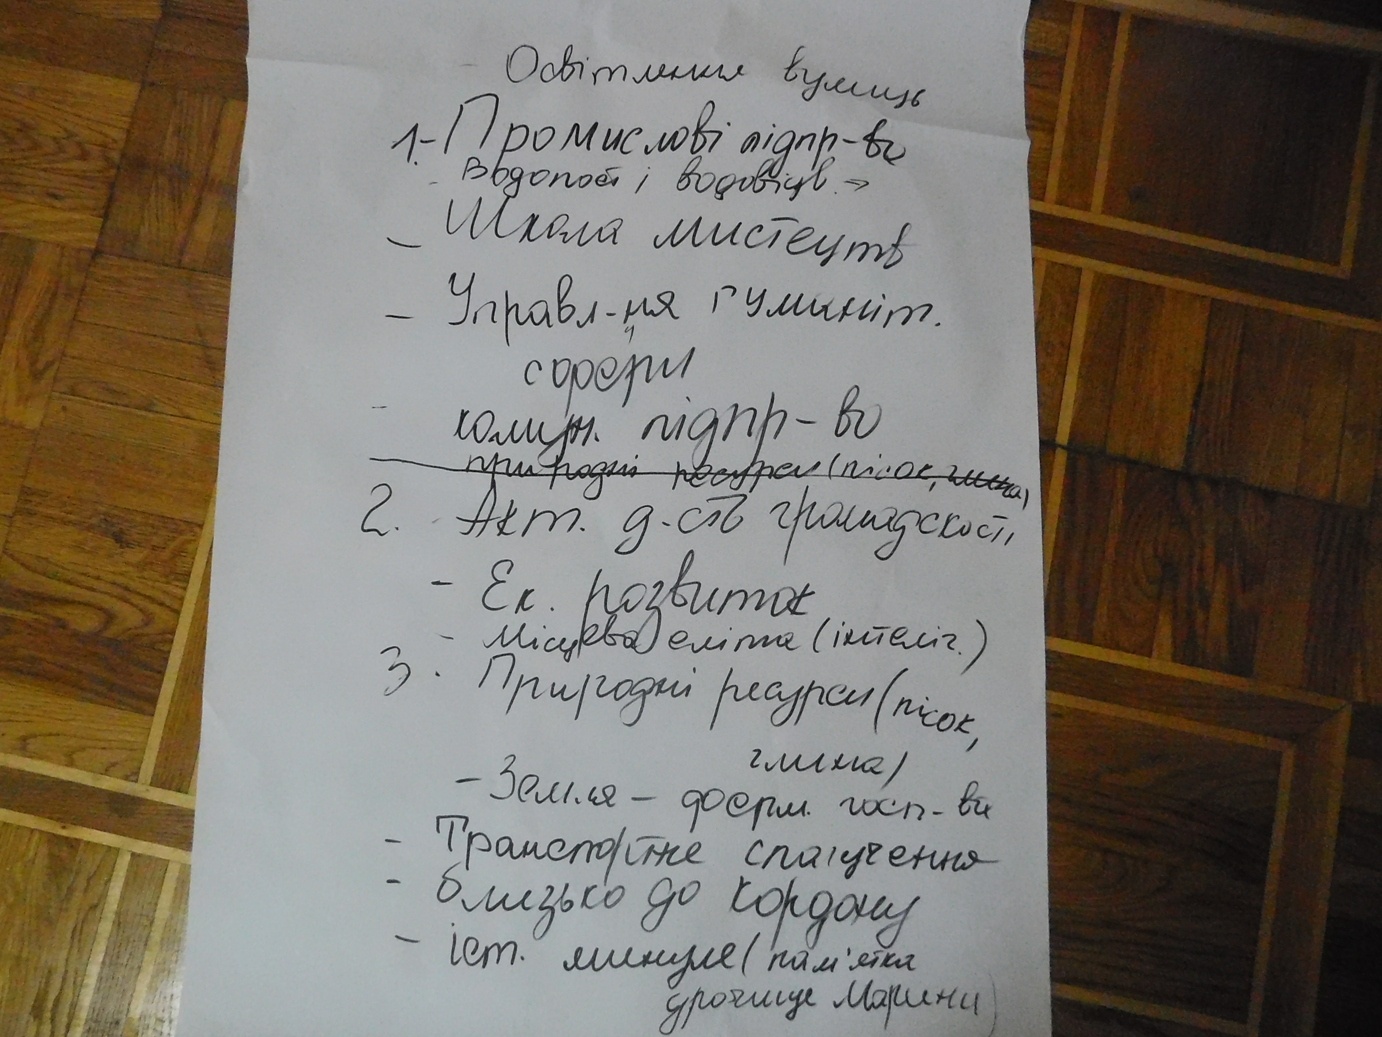 - Освітлення вулиць
1.- Промислові підпр-во
- Водопост і водовідв. →
- Школа мистецтв
- Управл-ня гуманіт.
сфери
- комун. підпр-во
природні ресурси (пісок, глина)
2. - Акт. д-сть громадскості
- Ек. розвиток
- Місцева еліта (інтеліг.)
3. Природні ресурси (пісок,
глина)
- Земля - ферм. госп-ва
- Транспортне сполучення
- близько до кордону
- іст. минуле (пам'ятка
урочище Марини)